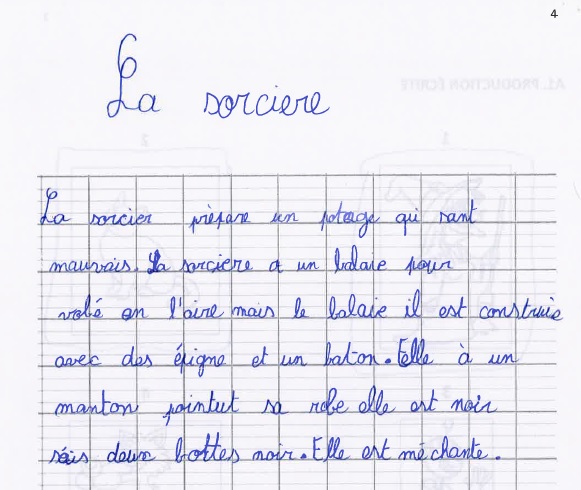 4
La sorciere
La sorcier prépare un potage qui sant
mauvais. La sorciere a un balaie pour
volé en l'aire mais le balaie il est construie
avec des épigne et un baton. Elle à un
manton pointut sa robe elle est noir
séis deux bottes noir. Elle est méchante.